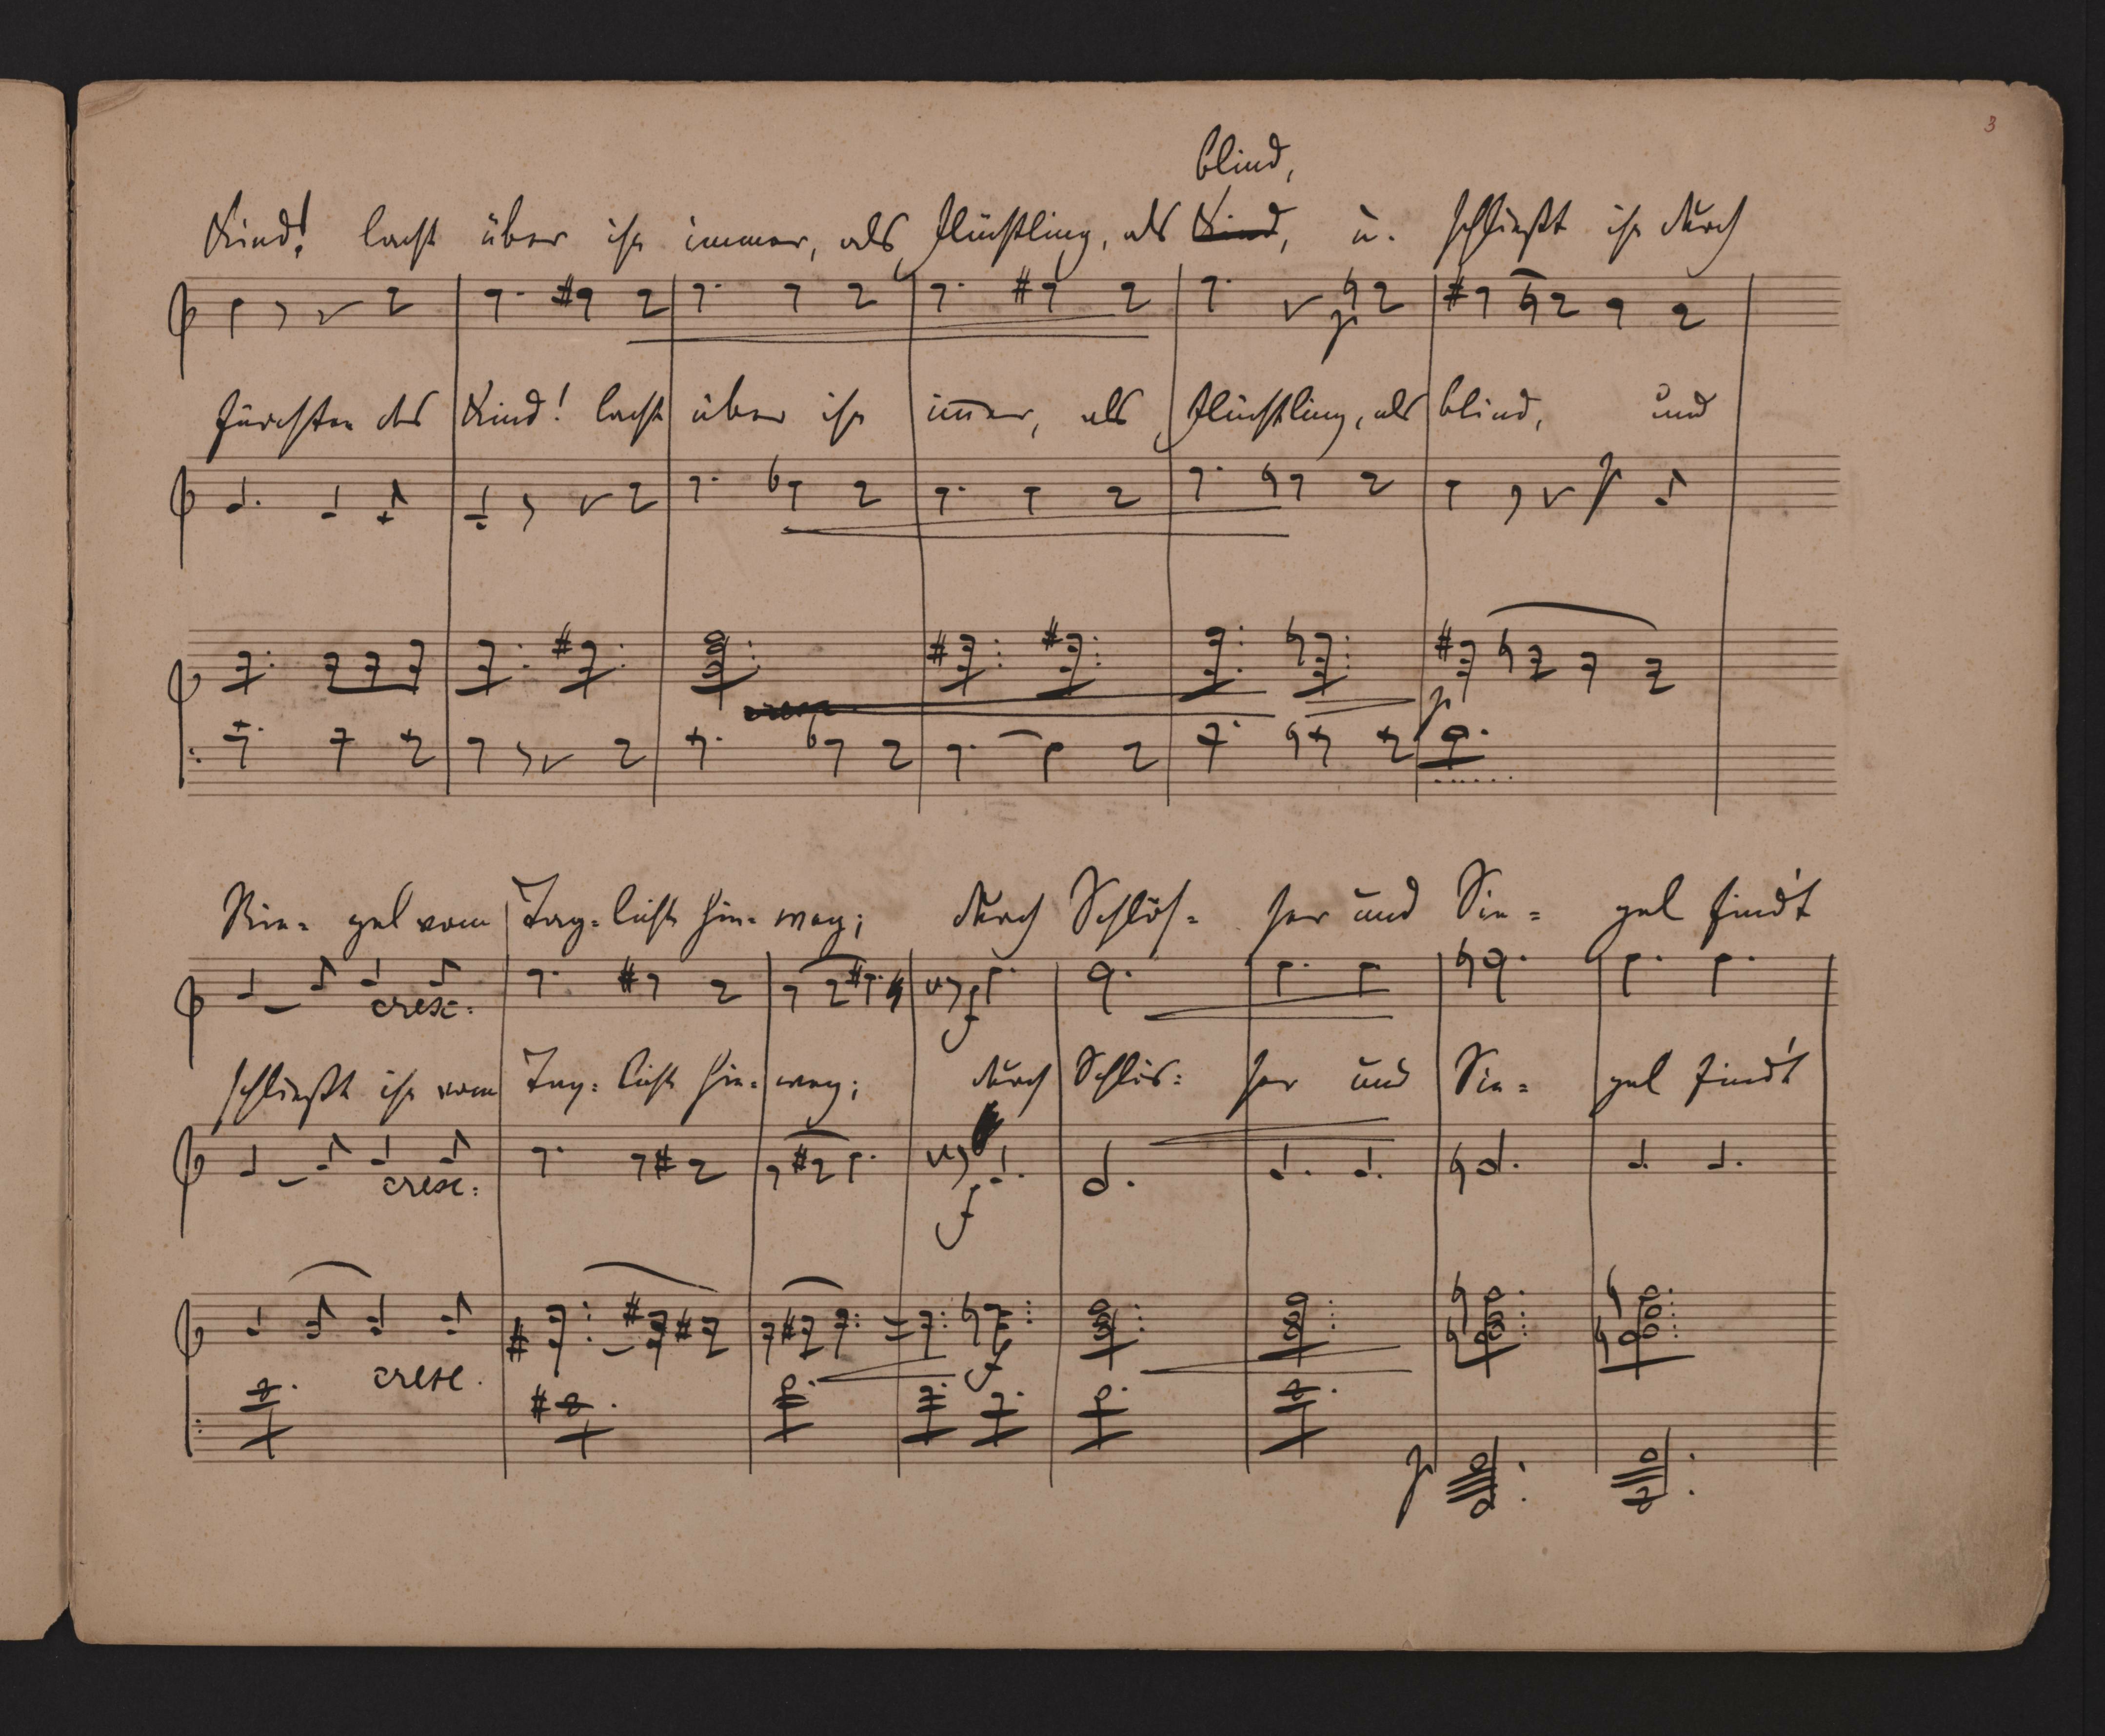 3
blind,
Kind! lacht über ihn immer, als Flüchtling, als Kind, u. schließt ihn durch
p
fürchten das Kind! lacht über ihn im̅er, als Flüchtling, als blind, und
p
p
Rie- gel vom Tag- licht hin- weg; durch Schlös- ser und Sie- gel find't
cresc: f
schließt ihn vom Tag- licht hin- weg; durch Schlös- ser und Sie- gel find't
cresc: f
cresc. f
p